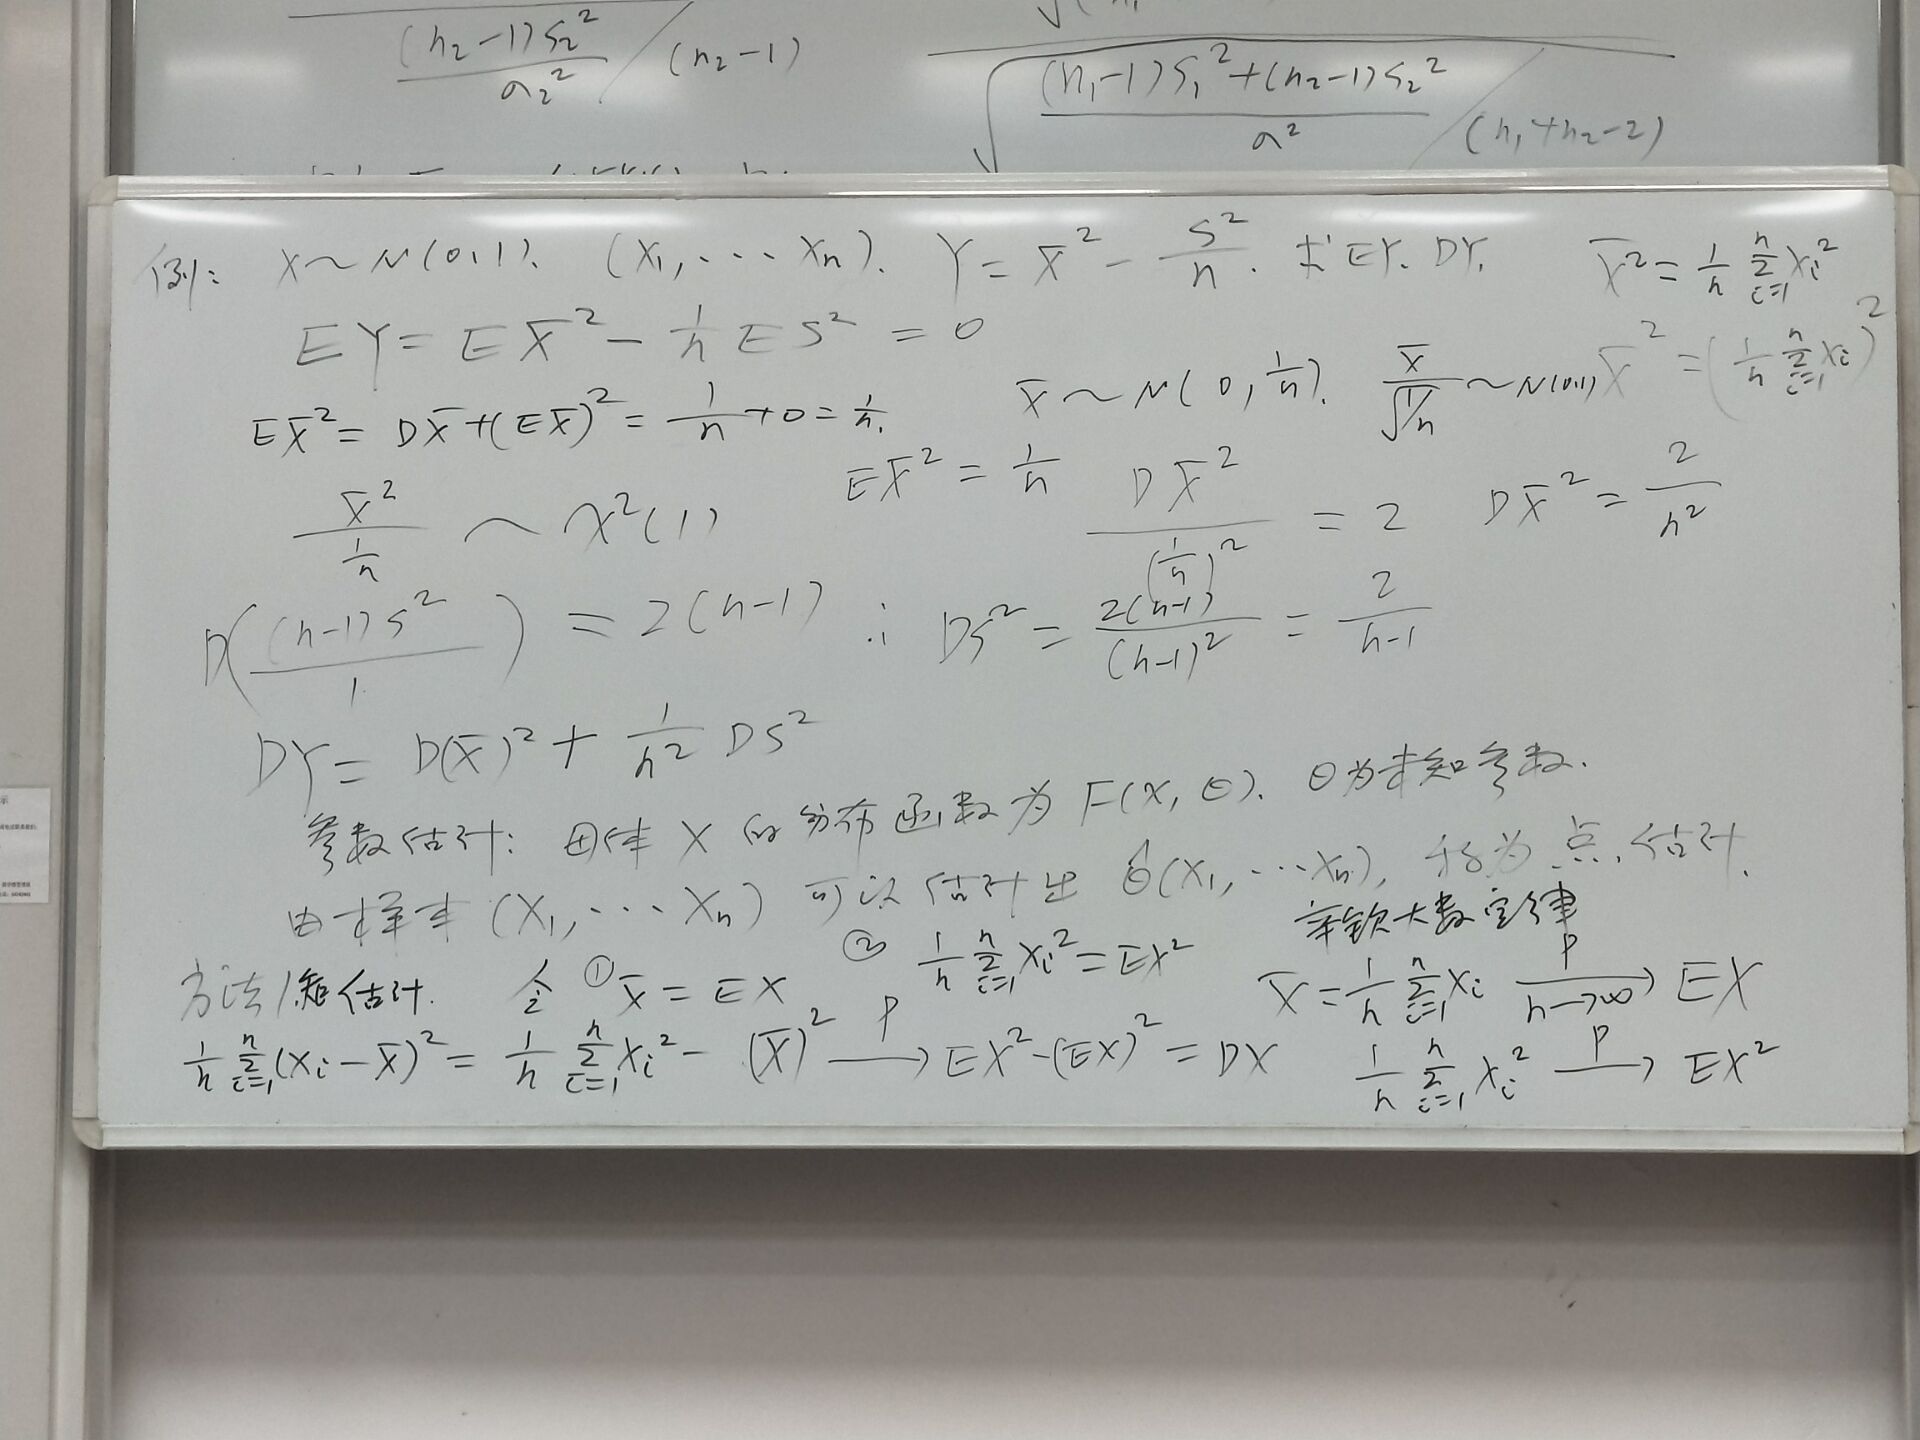 (n₂-1)S₂² / σ₂² / (n₂-1)
√( (n₁-1)S₁²+(n₂-1)S₂² / σ² / (n₁+n₂-2)
例: X~N(0,1). (X₁,⋯Xn). Y = X̄² - S²/n. 求EY. DY.
X̄² = 1/n Σ_{i=1}^{n} Xi²
EY = EX̄² - 1/n ES² = 0
X̄² = (1/n Σ_{i=1}^{n} Xi)²
EX̄² = DX̄+(EX̄)² = 1/n + 0 = 1/n.
X̄ ~ N(0, 1/n). X̄/√(1/n) ~ N(0,1)
X̄² / (1/n) ~ χ²(1)
EX̄² = 1/n
DX̄² / (1/n)² = 2
DX̄² = 2/n²
D((n-1)S² / 1) = 2(n-1) ∴ DS² = 2(n-1)/(n-1)² = 2/(n-1)
DY = D(X̄)² + 1/n² DS²
参数估计: 母体X的分布函数为F(X,θ). θ为未知参数.
由样本(X₁,⋯Xn)可以估计出 θ̂(X₁,⋯Xn), 称为点估计.
辛钦大数定律
方法1矩估计. 令 ① X̄ = EX ② 1/n Σ_{i=1}^{n} Xi² = EX²
X̄ = 1/n Σ_{i=1}^{n} Xi —P→ n→∞ EX
1/n Σ_{i=1}^{n} (Xi-X̄)² = 1/n Σ_{i=1}^{n} Xi² - (X̄)² —P→ EX²-(EX)² = DX
1/n Σ_{i=1}^{n} Xi² —P→ EX²